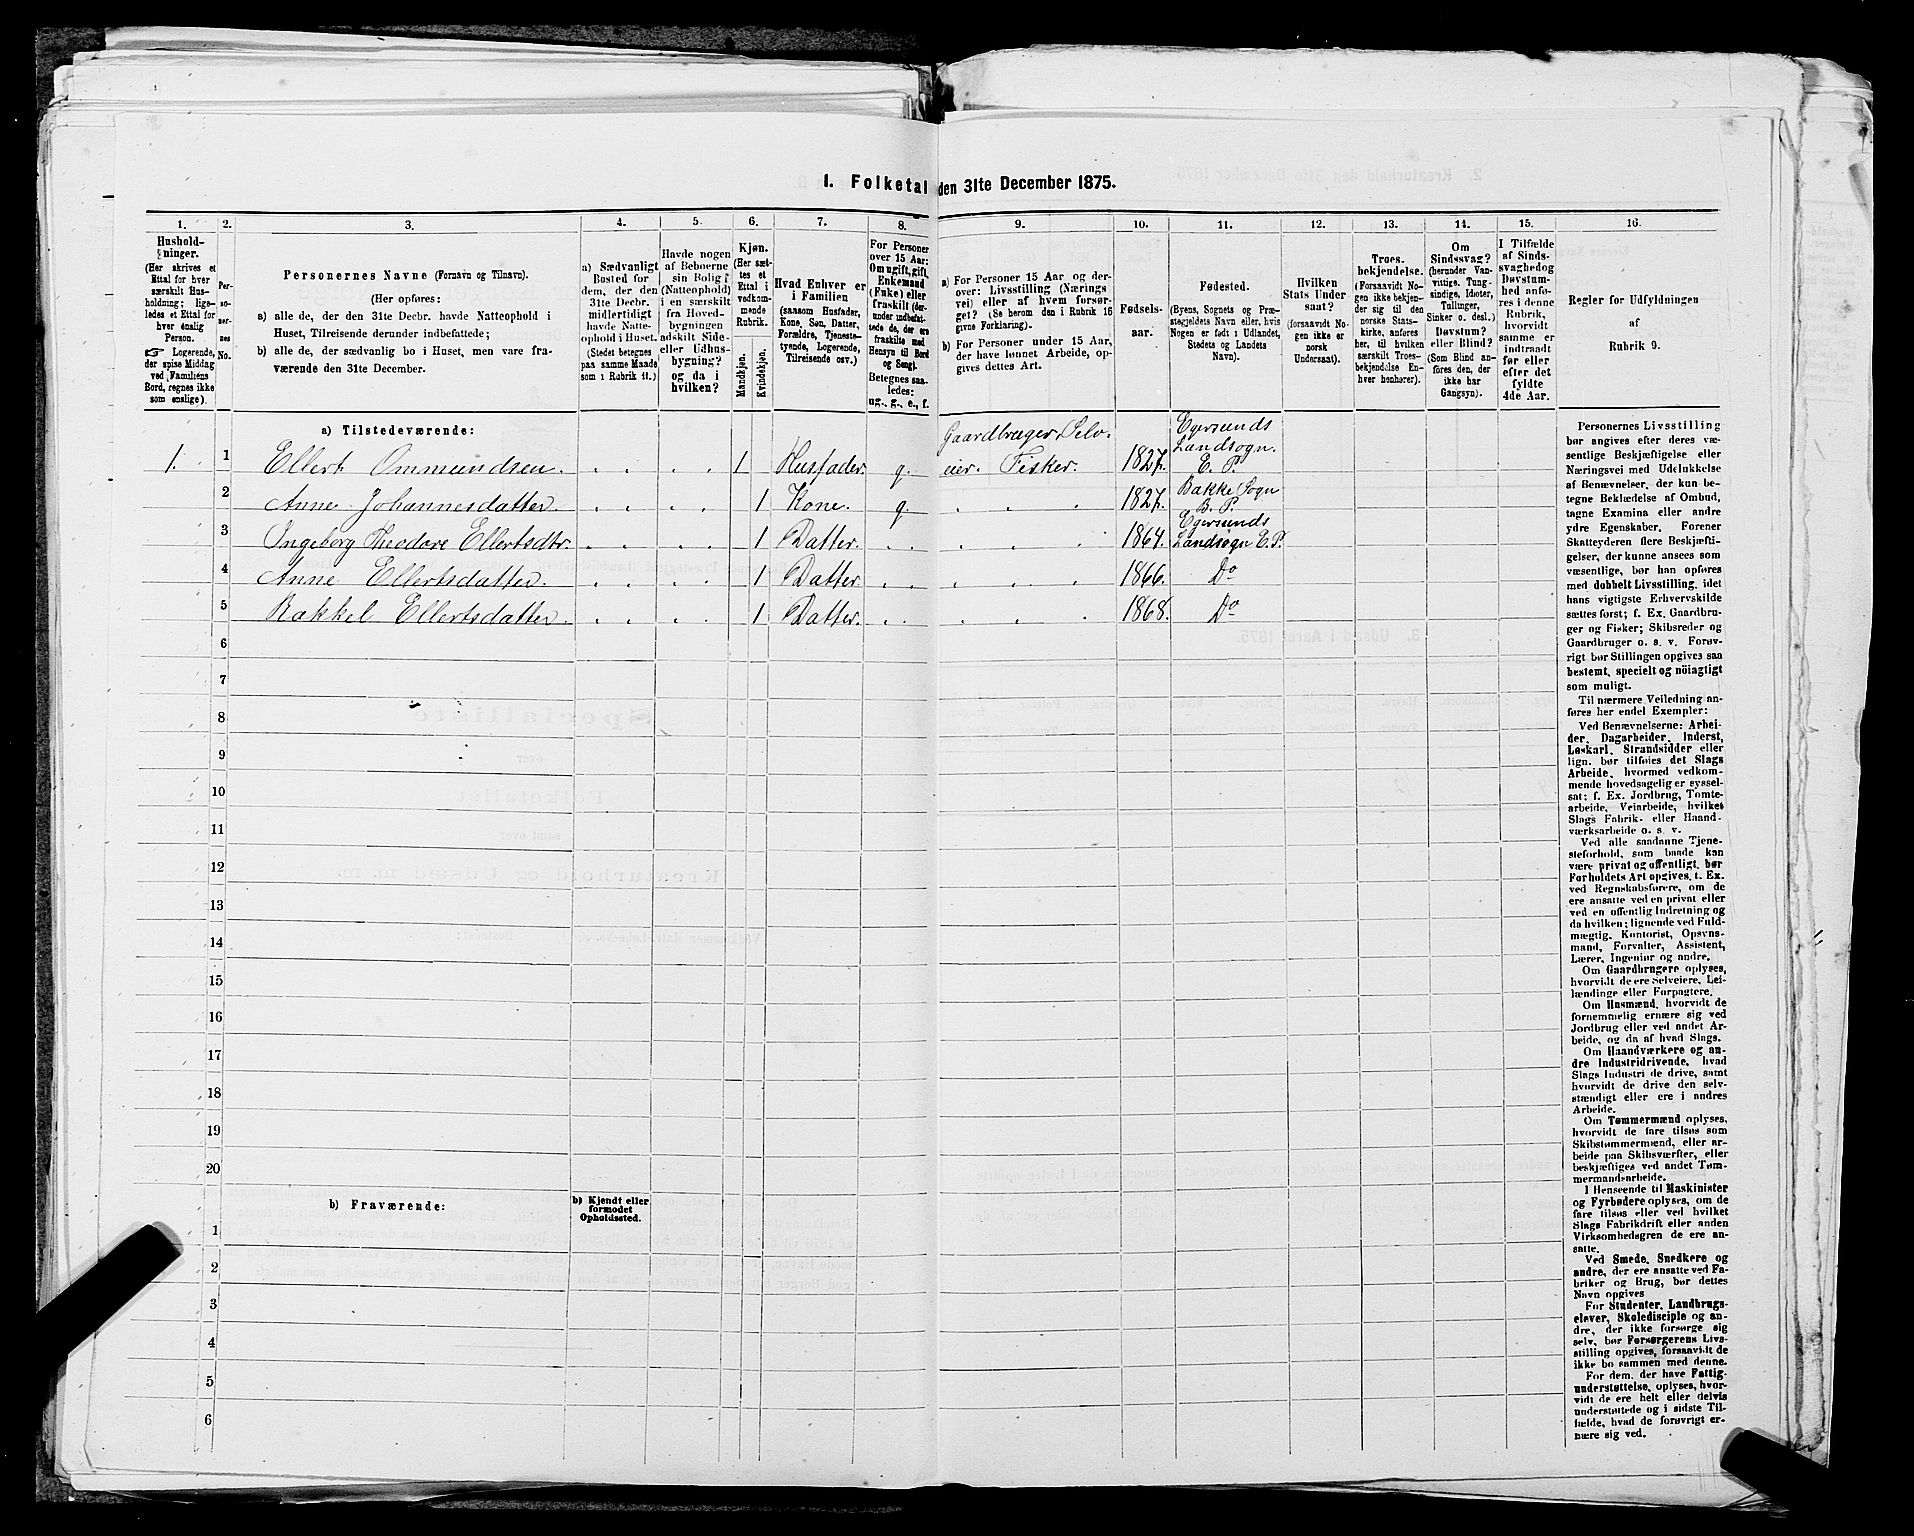 1. Folketal den 31te December 1875.
1.
Hushold-
ninger.
(Her skrives et
Ettal for hver
særskilt Hus-
holdning; lige-
ledes et Ettal for
hver enslig
Person.
☞ Logerende,
der spise Middag
ved Familiens
Bord, regnes ikke
som enslige).
2.
Per-
so-
ner-
nes
No.
3.
Personernes Navne (Fornavn og Tilnavn).
(Her opføres:
a) alle de, der den 31te Decbr. havde Natteophold i
Huset, Tilreisende derunder indbefattede;
b) alle de, der sædvanlig bo i Huset, men vare fra-
værende den 31te December.
4.
a) Sædvanligt
Bosted for
dem, der den
31te Decbr.
midlertidigt
havde Natte-
ophold i Huset.
(Stedet betegnes
paa samme Maade
som i Rubrik 11.)
5.
Havde nogen
af Beboerne
sin Bolig
(Natteophold)
i en særskilt
fra Hoved-
bygningen
adskilt Side-
eller Udhus-
bygning?
og da i
hvilken?
6.
Kjøn.
(Her sæt-
tes et
Ettal i
vedkom-
mende
Rubrik.
Mandkjøn.
Kvindekjøn.
7.
Hvad Enhver er
i Familien
(saasom Husfader,
Kone, Søn, Datter,
Forældre, Tjeneste-
tyende, Logerende,
Tilreisende osv.)
8.
For Personer
over 15 Aar:
Om ugift, gift,
Enkemand
(Enke) eller
fraskilt (der-
under indbefat-
tede de, der ere
fraskilte med
Hensyn til Bord
og Seng).
Betegnes saa-
ledes:
ug., g., e., f.
9.
a) For Personer 15 Aar og der-
over: Livsstilling (Nærings
vei) eller af hvem forsør-
get? (Se herom den i Rubrik 16
givne Forklaring).
b) For Personer under 15 Aar,
der have lønnet Arbeide, op-
gives dettes Art.
10.
Fødsels-
aar.
11.
Fødested.
(Byens, Sognets og Præ-
stegjeldets Navn eller, hvis
Nogen er født i Udlandet,
Stedets og Landets
Navn).
12.
Hvilken
Stats Under
saat?
(forsaavidt No-
gen ikke er
norsk
Undersaat).
13.
Troes-
bekjendelse.
(Forsaavidt No-
gen ikke bekjen-
der sig til den
norske Stats-
kirke, anføres
her, til hvilken
særskilt Troes-
bekjendelse En-
hver henhører).
14.
Om
Sindssvag?
(herunder Van-
vittige, Tung-
sindige, Idioter,
Tullinger,
Sinker o. desl.)
Døvstum?
eller Blind?
(Som Blind an-
føres den, der
ikke har
Gangsyn).
15.
I Tilfælde
af Sinds-
svaghed og
Døvstum-
hed anfø-
res i denne
Rubrik,
hvorvidt
samme er
indtraadt
før eller
efter det
fyldte
4de Aar.
16.
Regler for Udfyldningen
af
Rubrik 9.
a) Tilstedeværende:
1. 1 Ellert Ommundsen. 1 Husfader. g. Gaardbruger, Selv-
eier. Fisker. 1827. Egersunds
Landsogn.
E. P.
2 Anne Johannesdatter. 1 Kone. g. 1827. Bakke Sogn
B. P.
3 Ingeborg Theodore Ellertsdtr. 1 Datter. 1864. Egersunds
Landsogn E. P.
4 Anne Ellertsdatter. 1 Datter. 1866. Do
5 Rakkel Ellertsdatter. 1 Datter. 1868. Do
6
7
8
9
10
11
12
13
14
15
16
17
18
19
20
b) Fraværende:
b) Kjendt eller
formodet
Opholdssted.
1
2
3
4
5
6
Personernes Livsstilling
bør angives efter deres væ-
sentlige Beskjæftigelse eller
Næringsvei med Udelukkelse
af Benævnelser, der kun be-
tegne Beklædelse af Ombud,
tagne Examina eller andre
ydre Egenskaber. Forener
Skatteyderen flere Beskjæfti-
gelser, der kunne ansees som
væsentlige, bør han opføres
med dobbelt Livsstilling, idet
hans vigtigste Erhvervskilde
sættes først; f. Ex. Gaardbru-
ger og Fisker; Skibsreder og
Gaardbruger o. s. v. Forøv-
rigt bør Stillingen opgives saa
bestemt, specielt og nöiagtigt
som muligt.
Til nærmere Veiledning an-
føres her endel Exempler:
Ved Benævnelserne: Arbei-
der, Dagarbeider, Inderst,
Løskarl, Strandsidder eller
lign. bør tilføies det Slags
Arbeide, hvormed vedkom-
mende hovedsagelig er syssel-
sat; f. Ex. Jordbrug, Tomte-
arbeide, Veiarbeide, hvilket
Slags Fabrik- eller Haand-
værksarbeide o. s. v.
Ved alle saadanne Tjene-
steforhold, som baade kan
være privat og offentligt, bør
Forholdets Art opgives, t. Ex.
ved Regnskabsførere, om de
ere ansatte ved en privat eller
ved en offentlig Indretning og
da hvilken; lignende ved Fuld-
mægtig, Kontorist, Opsyns-
mand, Forvalter, Assistent,
Lærer, Ingeniør og andre.
Om Gaardbrugere oplyses,
hvorvidt de ere Selveiere, Lei-
lændinge eller Forpagtere.
Om Husmænd, hvorvidt de
fornemmelig ernære sig ved
Jordbrug eller ved andet Ar-
beide, og da af hvad Slags.
Om Haandværkere og an-
dre Industridrivende, hvad
Slags Industri de drive, samt
hvorvidt de drive den selv-
stændigt eller ere i andres
Arbeide.
Om Tømmermænd oplyses,
hvorvidt de fare tilsøs som
Skibstømmermænd, eller ar-
beide paa Skibsværfter, eller
beskjæftiges ved andet Tøm-
mermandsarbeide.
I Henseende til Maskinister
og Fyrbødere oplyses, om de
fare tilsøs eller ved hvilket
Slags Fabrikdrift eller anden
Virksomhedsgren de ere an-
satte.
Ved Smede, Snedkere og
andre, der ere ansatte ved Fa-
briker og Brug, bør dettes
Navn opgives
For Studenter, Landbrugs-
elever, Skoledisciple og an-
dre, der ikke forsørge sig
selv, bør Forsørgerens Livs-
stilling opgives, forsaavidt de
ikke bo sammen med denne.
For dem, der have Fattig-
understøttelse, oplyses, hvor-
vidt de ere helt eller delvis
understøttede og i sidste Til-
fælde, hvad de forøvrigt er-
nære sig ved.